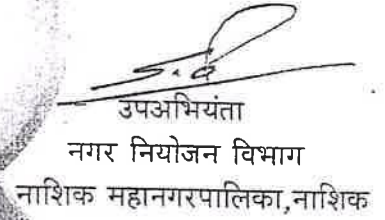 उपअभियंता
नगर नियोजन विभाग
नाशिक महानगरपालिका,नाशिक